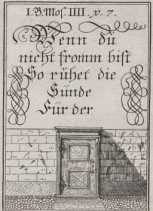 I. B. Mos. IIII. v. 7.
Wenn du
nicht fromm bist
So rühet die
Sünde
Für der